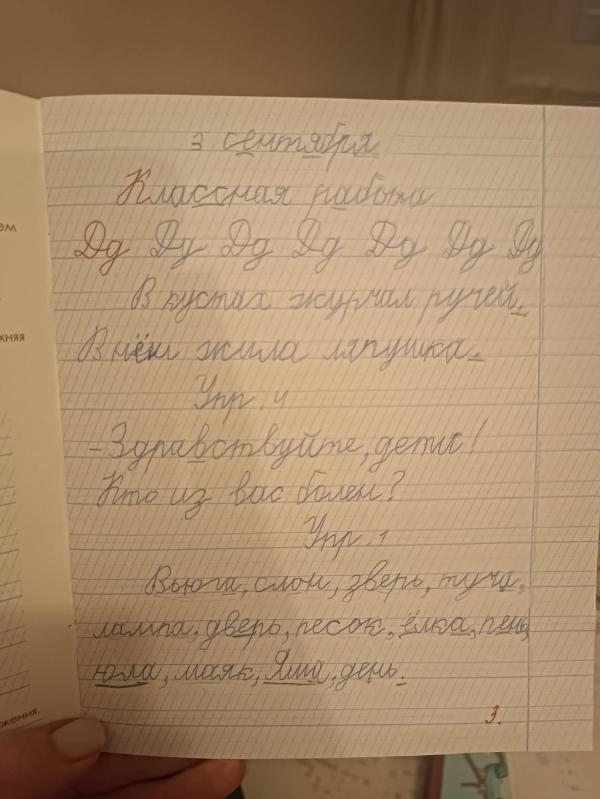 3 сентября
Классная работа
Дд Дд Дд Дд Дд Дд Дд
В кустах журчал ручей.
В нём жила лягушка.
Упр. 4
- Здравствуйте, дети!
Кто из вас болен?
Упр. 1
Вьюга, слон, зверь, туча,
лампа, дверь, песок, ёлка, пень,
юла, маяк, Яша, день.
3.
ем
жняя
жения.